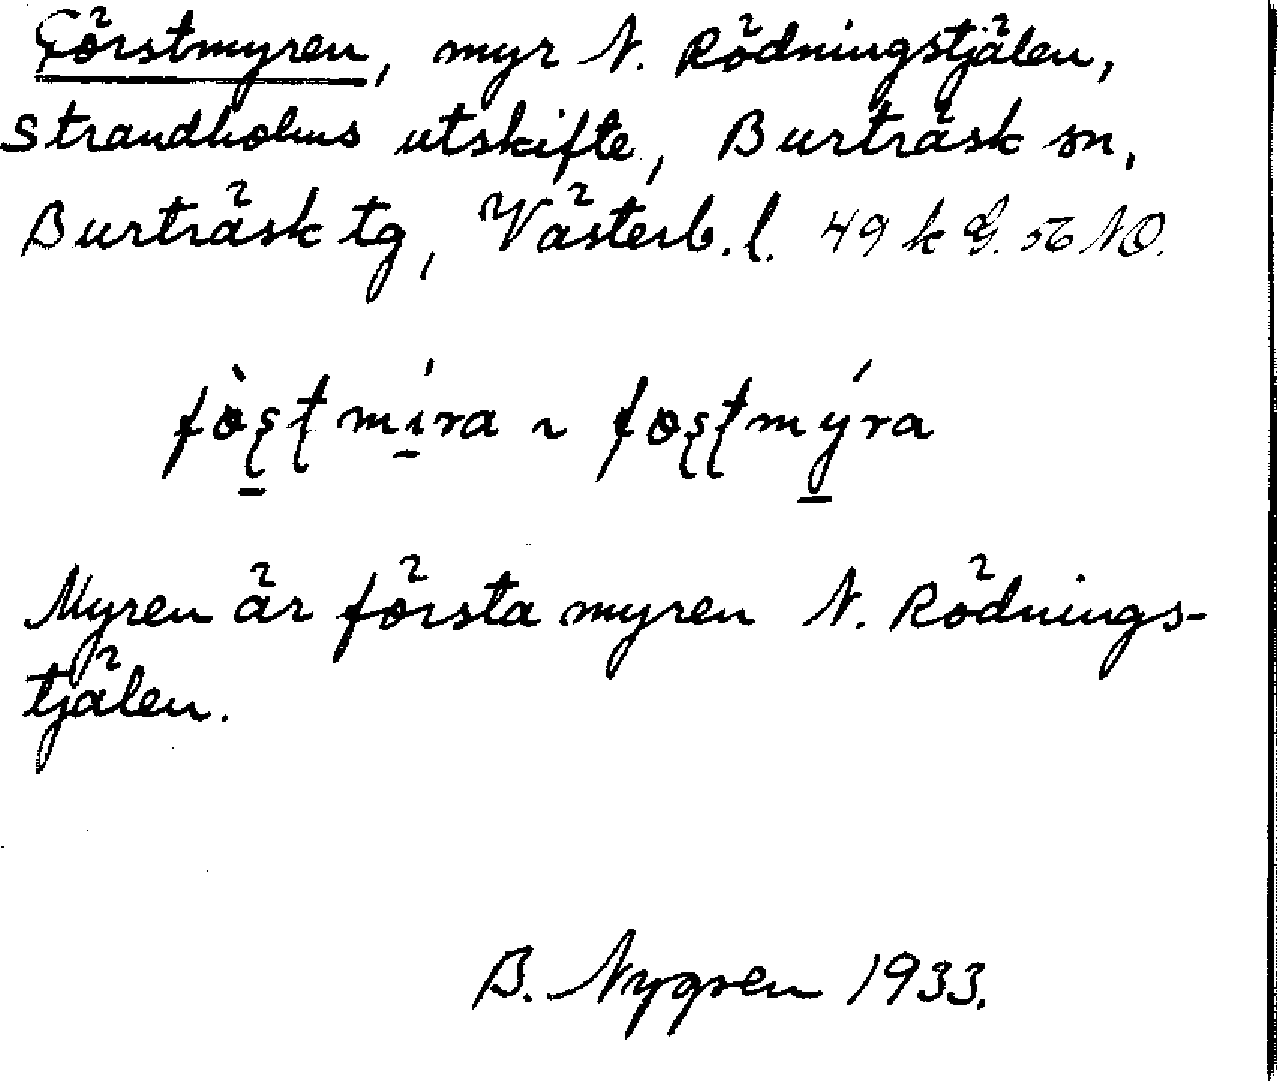 Förstmyren, myr N. Rödningstjälen,
Strandholms utskifte, Burträsk sn,
Burträsk tg, Västerb. l. 49 k E. 56 NO.
fö̀ʂʈmíra ~ föʂʈmýra
Myren är första myren N. Rödnings-
tjälen.
B. Nygren 1933.